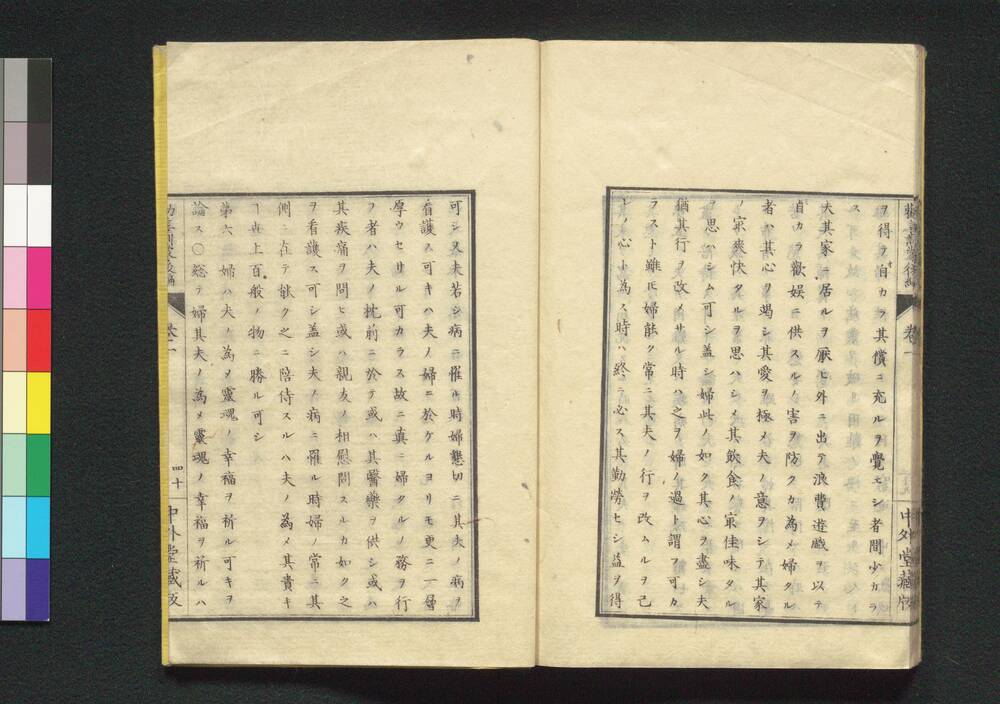 ヲ得テ自カラ其償ニ充ルヲ覺エシ者間少カラ
ス
夫其家ニ居ルヲ厭ヒ外ニ出テ浪費遊戯ヲ以テ
自カラ歡娯ニ供スルノ害ヲ防クカ為メ婦タル
者ハ其心ヲ竭シ其愛ヲ極メ夫ノ意ヲシテ其家
ノ㝡爽快タルヲ思ハシメ其飲食ノ㝡佳味タル
ヲ思ハシム可シ盖シ婦此ノ如ク其心ヲ盡シ夫
猶其行ヲ改メサル時ハ之ヲ婦ノ過ト謂フ可カ
ラスト雖𪜈婦能ク常ニ其夫ノ行ヲ改ムルヲ己
レノ心ト為ス時ハ終ニ必ス其勤勞セシ益ヲ得
卷一
中外堂藏版
可シ又夫若シ病ニ罹ル時婦懇切ニ其夫ノ病ヲ
看護ス可キハ夫ノ婦ニ於ケルヨリモ更ニ一層
厚ウセサル可カラス故ニ真ニ婦タルノ務ヲ行
フ者ハ夫ノ枕前ニ於テ或ハ其醫藥ヲ供シ或ハ
其疾痛ヲ問ヒ或ハ親友ノ相慰問スルカ如ク之
ヲ看護ス可シ盖シ夫ノ病ニ罹ル時婦ノ常ニ其
側ニ在テ献ク之ニ陪侍スルハ夫ノ為メ其貴キ
ヿ世上百般ノ物ニ勝ル可シ
第六 婦ハ夫ノ為メ靈魂ノ幸福ヲ祈ル可キヲ
論ス〇総テ婦其夫ノ為メ靈魂ノ幸福ヲ祈ルハ
卷一
四十
中外堂藏版